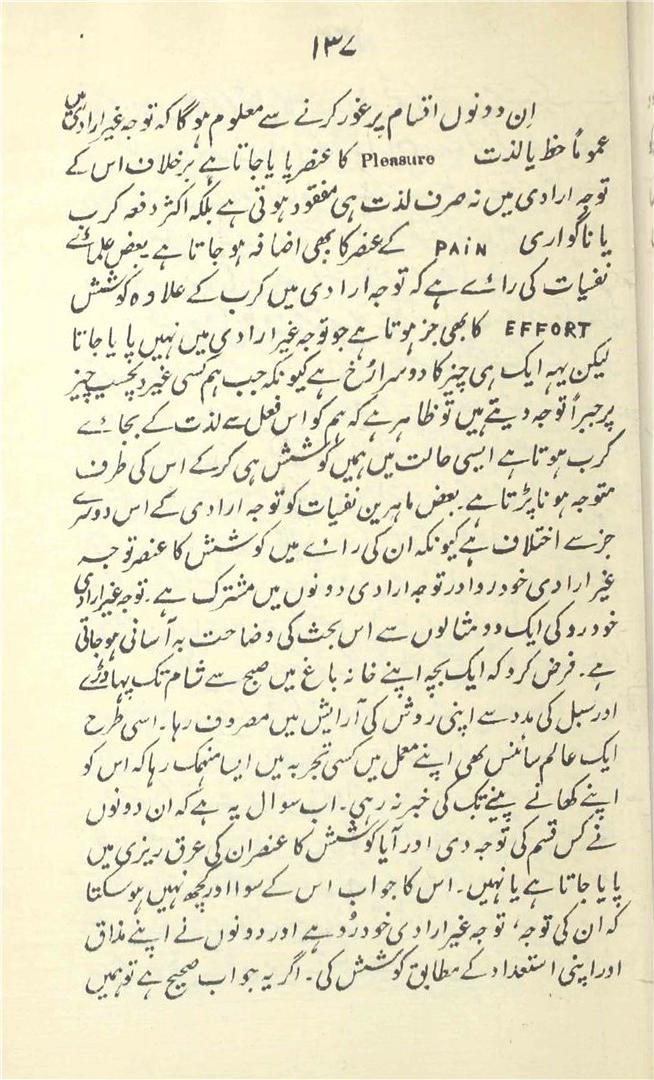 ۱۳۷
اِن دونوں اقسام پر غور کرنے سے معلوم ہوگا کہ توجہ غیرارادی میں
عموماً حظ یا لذت Pleasure کا عنصر پایا جاتا ہے برخلاف اس کے
توجہ ارادی میں نہ صرف لذت ہی مفقود ہوتی ہے بلکہ اکثر دفعہ کرب
یا ناگواری PAIN کے عنصر کا بھی اضافہ ہو جاتا ہے بعض علمائے
نفسیات کی رائے ہے کہ توجہ ارادی میں کرب کے علاوہ کوشش
EFFORT کا بھی جز ہوتا ہے جو توجہ غیر ارادی میں نہیں پایا جاتا
لیکن یہہ ایک ہی چیز کا دوسرا رُخ ہے کیونکہ جب ہم کسی غیر دلچسپ چیز
پر جبراً توجہ دیتے ہیں تو ظاہر ہے کہ ہم کو اس فعل سے لذت کے بجائے
کرب ہوتا ہے ایسی حالت میں ہمیں کوشش ہی کرکے اس کی طرف
متوجہ ہونا پڑتا ہے۔ بعض ماہرین نفسیات کو توجہ ارادی کے اس دوسرے
جز سے اختلاف ہے کیونکہ ان کی رائے میں کوشش کا عنصر توجہ
غیر ارادی خودرو اور توجہ ارادی دونوں میں مشترک ہے۔ توجہ غیر ارادی
خودرو کی ایک دو مثالوں سے اس بحث کی وضاحت بہ آسانی ہو جاتی
ہے۔ فرض کرو کہ ایک بچہ اپنے خانہ باغ میں صبح سے شام تک پھاوڑے
اور سبل کی مدد سے اپنی روش کی آرایش میں مصروف رہا۔ اسی طرح
ایک عالم سائنس بھی اپنے معمل میں کسی تجربہ میں ایسا منہمک رہا کہ اس کو
اپنے کھانے پینے تک کی خبر نہ رہی۔ اب سوال یہ ہے کہ ان دونوں
نے کس قسم کی توجہ دی اور آیا کوشش کا عنصر ان کی عرق ریزی میں
پایا جاتا ہے یا نہیں۔ اس کا جواب اس کے سوا اور کچھ نہیں ہو سکتا
کہ ان کی توجہ، توجہ غیر ارادی خودرُو ہے اور دونوں نے اپنے مذاق
اور اپنی استعداد کے مطابق کوشش کی۔ اگر یہ جواب صحیح ہے تو ہمیں